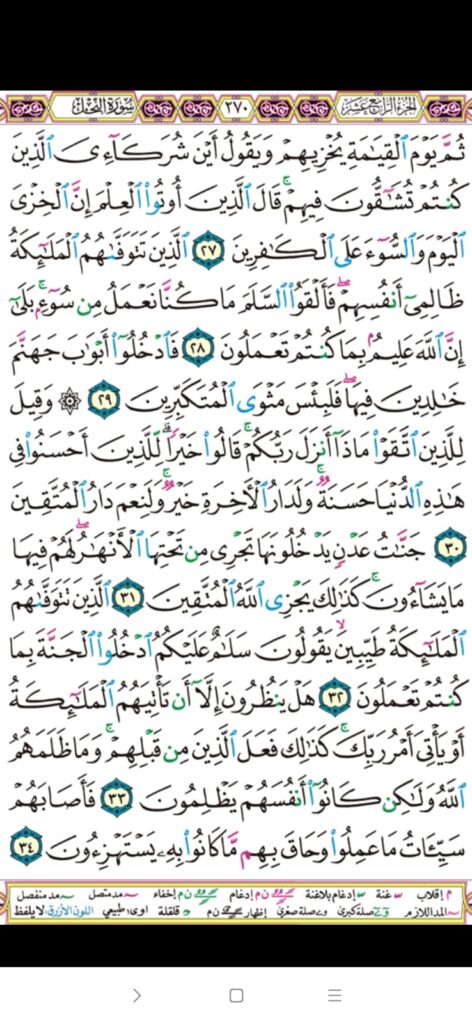 الجزء الرابع عشر ٢٧٠ سورة النحل
ثُمَّ يَوْمَ ٱلْقِيَٰمَةِ يُخْزِيهِمْ وَيَقُولُ أَيْنَ شُرَكَآءِىَ ٱلَّذِينَ
كُنتُمْ تُشَٰٓقُّونَ فِيهِمْ ۚ قَالَ ٱلَّذِينَ أُوتُوا۟ ٱلْعِلْمَ إِنَّ ٱلْخِزْىَ
ٱلْيَوْمَ وَٱلسُّوٓءَ عَلَى ٱلْكَٰفِرِينَ ٢٧ ٱلَّذِينَ تَتَوَفَّىٰهُمُ ٱلْمَلَٰٓئِكَةُ
ظَالِمِىٓ أَنفُسِهِمْ ۖ فَأَلْقَوُا۟ ٱلسَّلَمَ مَا كُنَّا نَعْمَلُ مِن سُوٓءٍۭ ۚ بَلَىٰٓ
إِنَّ ٱللَّهَ عَلِيمٌۢ بِمَا كُنتُمْ تَعْمَلُونَ ٢٨ فَٱدْخُلُوٓا۟ أَبْوَٰبَ جَهَنَّمَ
خَٰلِدِينَ فِيهَا ۖ فَلَبِئْسَ مَثْوَى ٱلْمُتَكَبِّرِينَ ٢٩ ۞ وَقِيلَ
لِلَّذِينَ ٱتَّقَوْا۟ مَاذَآ أَنزَلَ رَبُّكُمْ ۚ قَالُوا۟ خَيْرًا ۗ لِّلَّذِينَ أَحْسَنُوا۟ فِى
هَٰذِهِ ٱلدُّنْيَا حَسَنَةٌ ۚ وَلَدَارُ ٱلْءَاخِرَةِ خَيْرٌ ۚ وَلَنِعْمَ دَارُ ٱلْمُتَّقِينَ
٣٠ جَنَّٰتُ عَدْنٍ يَدْخُلُونَهَا تَجْرِى مِن تَحْتِهَا ٱلْأَنْهَٰرُ ۖ لَهُمْ فِيهَا
مَا يَشَآءُونَ ۚ كَذَٰلِكَ يَجْزِى ٱللَّهُ ٱلْمُتَّقِينَ ٣١ ٱلَّذِينَ تَتَوَفَّىٰهُمُ
ٱلْمَلَٰٓئِكَةُ طَيِّبِينَ ۙ يَقُولُونَ سَلَٰمٌ عَلَيْكُمُ ٱدْخُلُوا۟ ٱلْجَنَّةَ بِمَا
كُنتُمْ تَعْمَلُونَ ٣٢ هَلْ يَنظُرُونَ إِلَّآ أَن تَأْتِيَهُمُ ٱلْمَلَٰٓئِكَةُ
أَوْ يَأْتِىَ أَمْرُ رَبِّكَ ۚ كَذَٰلِكَ فَعَلَ ٱلَّذِينَ مِن قَبْلِهِمْ ۚ وَمَا ظَلَمَهُمُ
ٱللَّهُ وَلَٰكِن كَانُوٓا۟ أَنفُسَهُمْ يَظْلِمُونَ ٣٣ فَأَصَابَهُمْ
سَيِّـَٔاتُ مَا عَمِلُوا۟ وَحَاقَ بِهِم مَّا كَانُوا۟ بِهِۦ يَسْتَهْزِءُونَ ٣٤
م إقلاب غنة إدغام بلاغنة ن م إدغام ن م إخفاء مد متصل مد منفصل
المد اللازم صلة كبرى صلة صغرى إظهار ن م قلقلة اوى طبيعي اللون الأزرق لا يلفظ